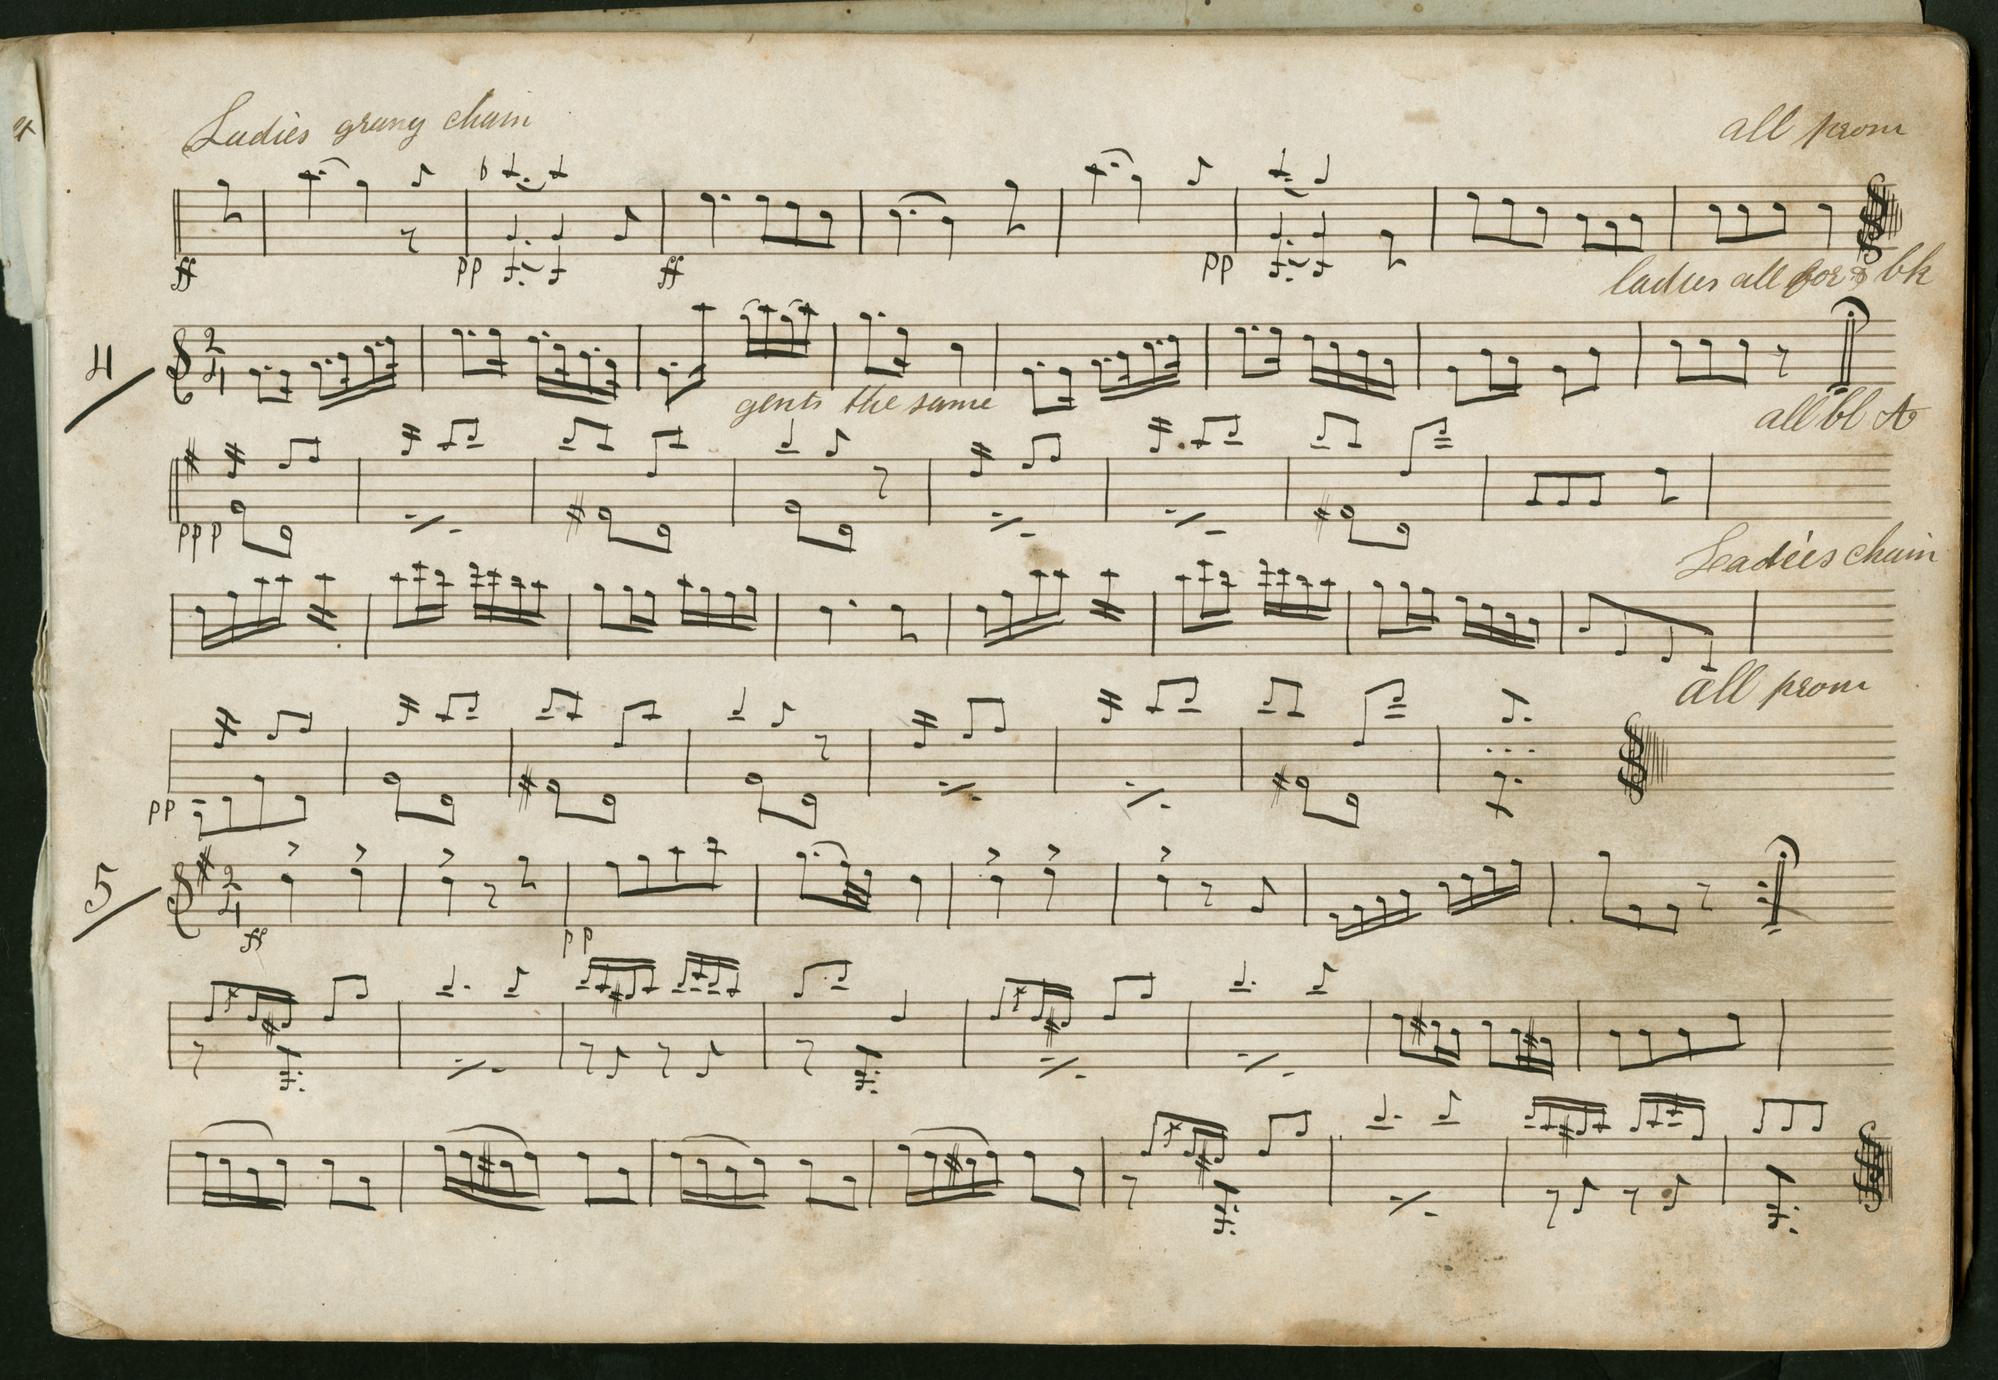 Ladies grang chain
all prom
ff pp ff pp
ladies all for & bk
4/
2 4
gents the same
all bl
ppp
Ladies chain
all prom
pp
5/
2 4
ff pp